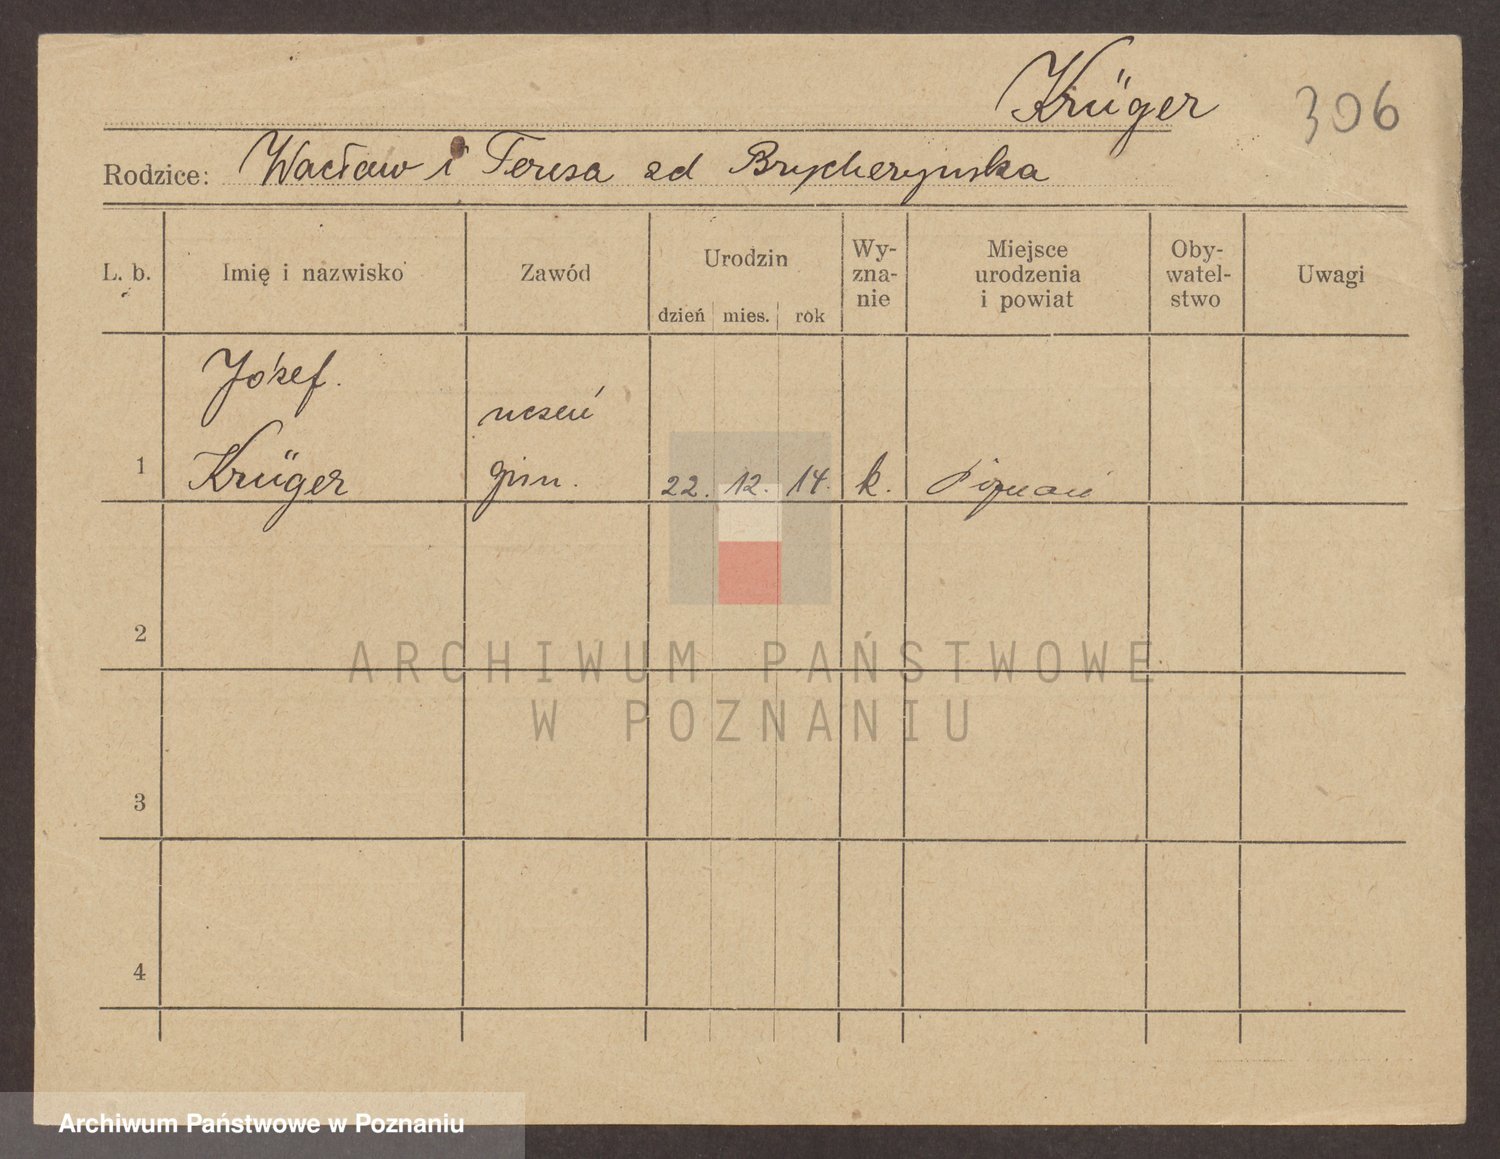 Krüger
306
Rodzice: Wacław i Teresa zd Brycherzynska
L. b.
Imię i nazwisko
Zawód
Urodzin
dzień mies. rok
Wy-
zna-
nie
Miejsce
urodzenia
i powiat
Oby-
watel-
stwo
Uwagi
1
Józef.
Krüger
uczeń
gimn.
22. 12. 14.
k.
Poznań
2
3
4
ARCHIWUM PAŃSTWOWE
W POZNANIU
Archiwum Państwowe w Poznaniu